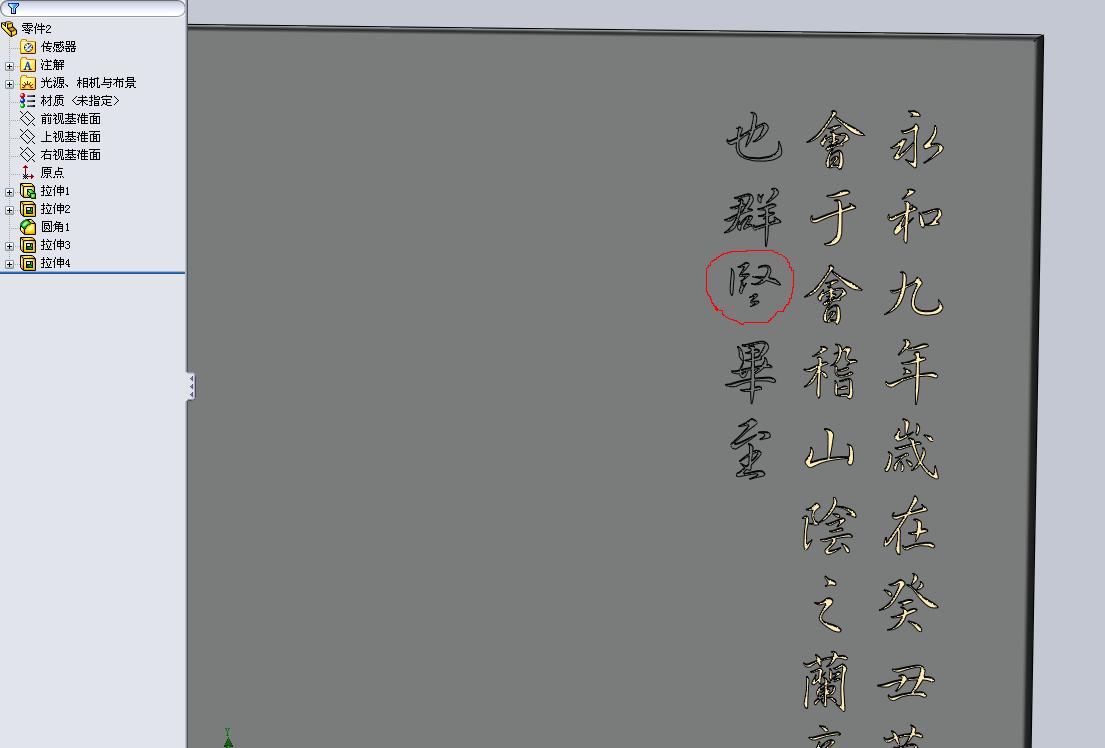 零件2
传感器
注解
光源、相机与布景
材质 <未指定>
前视基准面
上视基准面
右视基准面
原点
拉伸1
拉伸2
圆角1
拉伸3
拉伸4
永和九年歲在癸丑
會于會稽山陰之蘭
也群畢至
Y